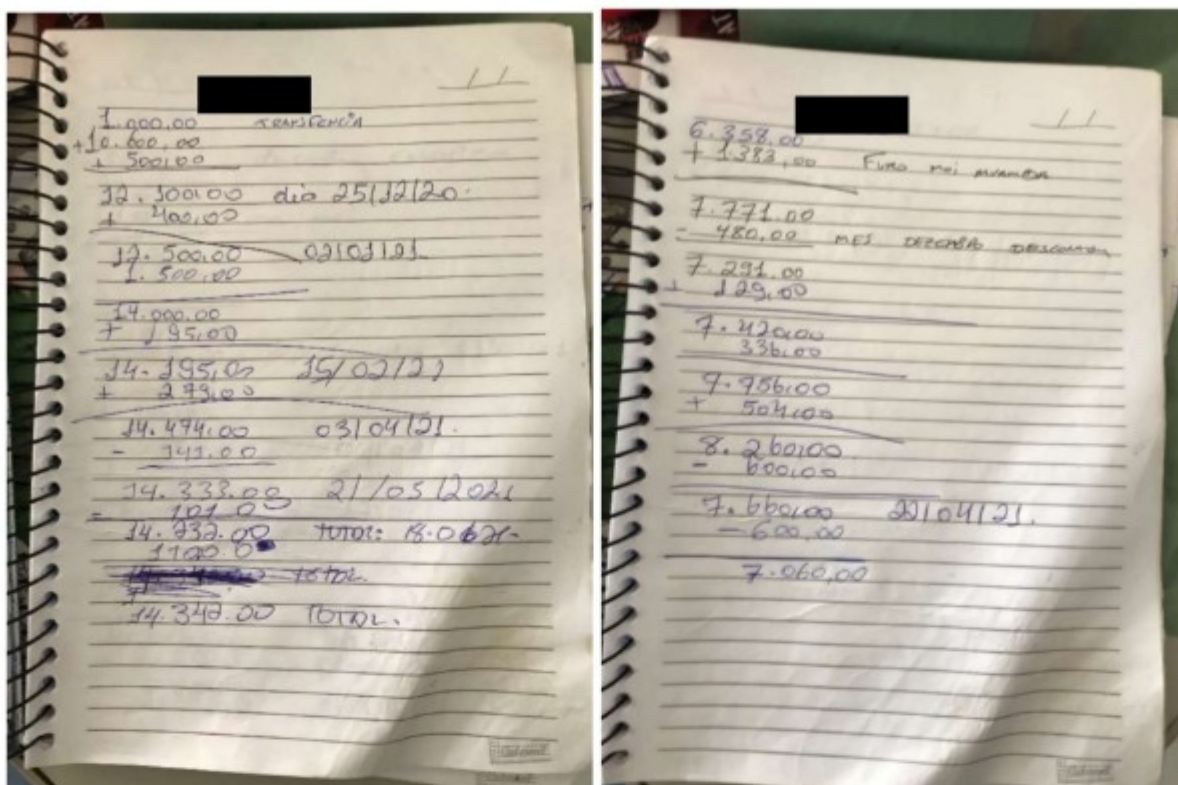 / /
1.000,00 TRANSFENCIA
+10.600,00
+ 500,00
12.100,00 dia 25/12/20.
+ 400,00
12.500,00 02/01/21
1.500,00
14.000,00
+ 195,00
14.195,00 15/02/21
+ 279,00
14.474,00 03/04/21.
- 141,00
14.333,00 21/05/2021
- 101,00
14.232,00 TOTAL:
TOTAL.
14.342,00 TOTAL.
/ /
6.358,00
+ 1.383,00 FURO
7.771,00
- 480,00 MES
7.291,00
+ 129,00
7.420,00
336,00
7.756,00
+ 504,00
8.260,00
- 600,00
7.660,00 22/04/21.
- 600,00
7.060,00